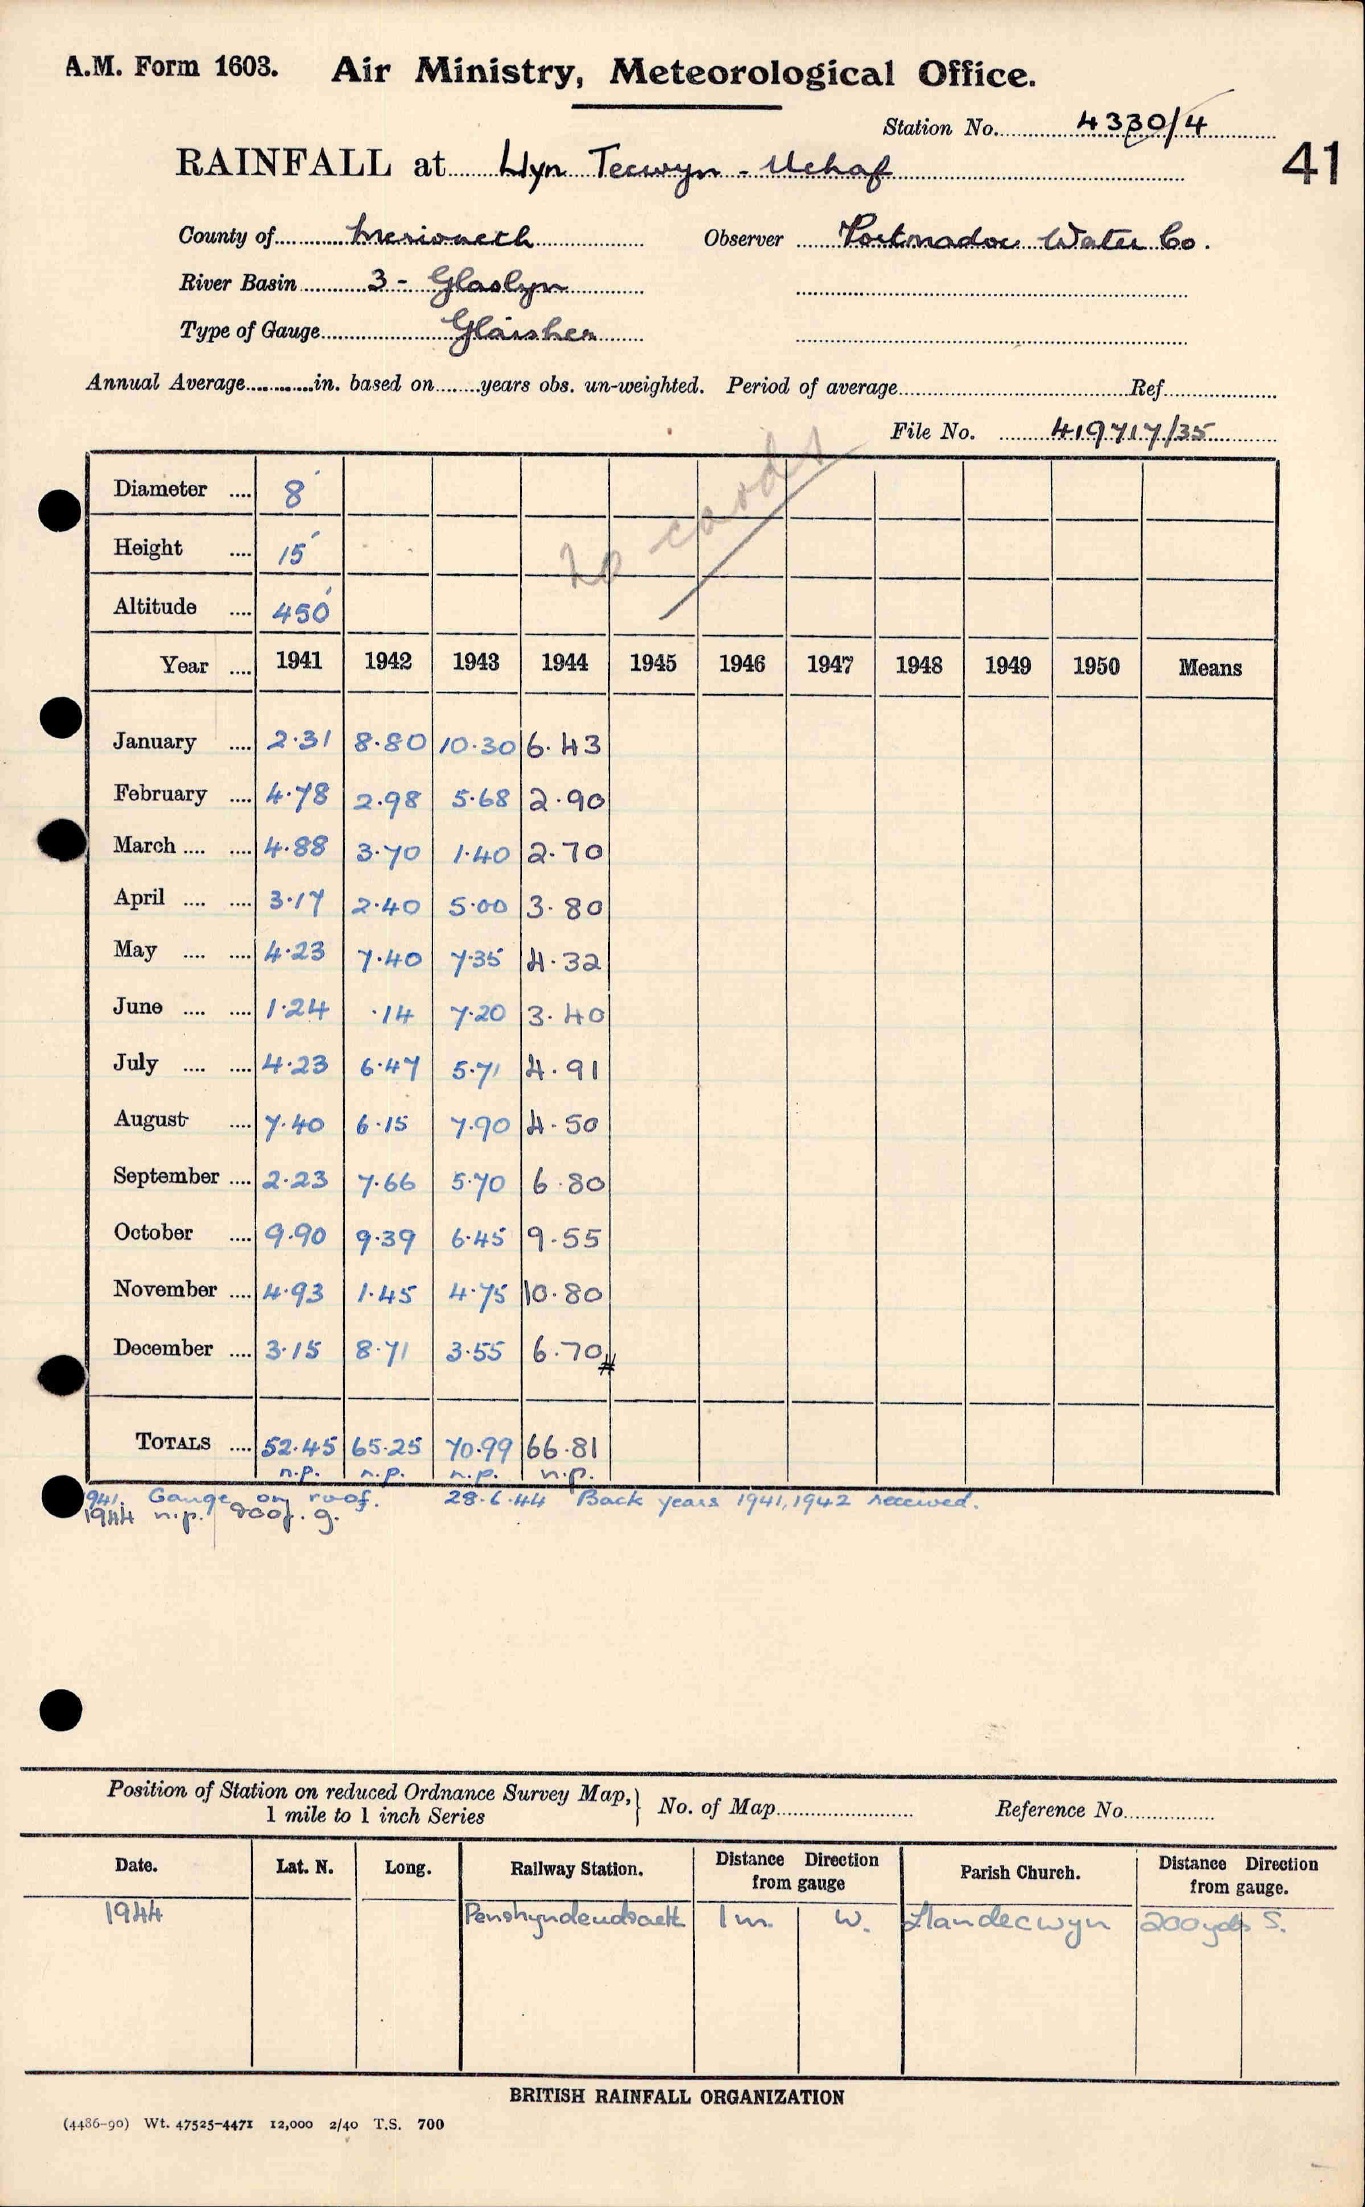 A.M. Form 1603. Air Ministry, Meteorological Office.
Station No. 4330/4
41
RAINFALL at Llyn Tecwyn - Uchaf
County of Merioneth Observer Portmadoc Water Co.
River Basin 3 - Glaslyn
Type of Gauge Glaisher
Annual Average in. based on years obs. un-weighted. Period of average Ref.
File No. 419717/35
no cards
Diameter 8"
Height 15'
Altitude 450'
Year 1941 1942 1943 1944 1945 1946 1947 1948 1949 1950 Means
January 2.31 8.80 10.30 6.43
February 4.78 2.98 5.68 2.90
March 4.88 3.70 1.40 2.70
April 3.17 2.40 5.00 3.80
May 4.23 7.40 7.35 4.32
June 1.24 .14 7.20 3.40
July 4.23 6.47 5.71 4.91
August 7.40 6.15 7.90 4.50
September 2.23 7.66 5.70 6.80
October 9.90 9.39 6.45 9.55
November 4.93 1.45 4.75 10.80
December 3.15 8.71 3.55 6.70 #
TOTALS 52.45 65.25 70.99 66.81
n.p. n.p. n.p. n.p.
1941. Gauge on roof. 28.6.44 Back years 1941, 1942 received.
1944 n.p. roof. g.
Position of Station on reduced Ordnance Survey Map, } No. of Map Reference No.
1 mile to 1 inch Series
Date. Lat. N. Long. Railway Station. Distance Direction from gauge Parish Church. Distance Direction from gauge.
1944 1 m. W. Llandecwyn 200 yds S.
BRITISH RAINFALL ORGANIZATION
(4486-90) Wt. 47525-4471 12,000 2/40 T.S. 700